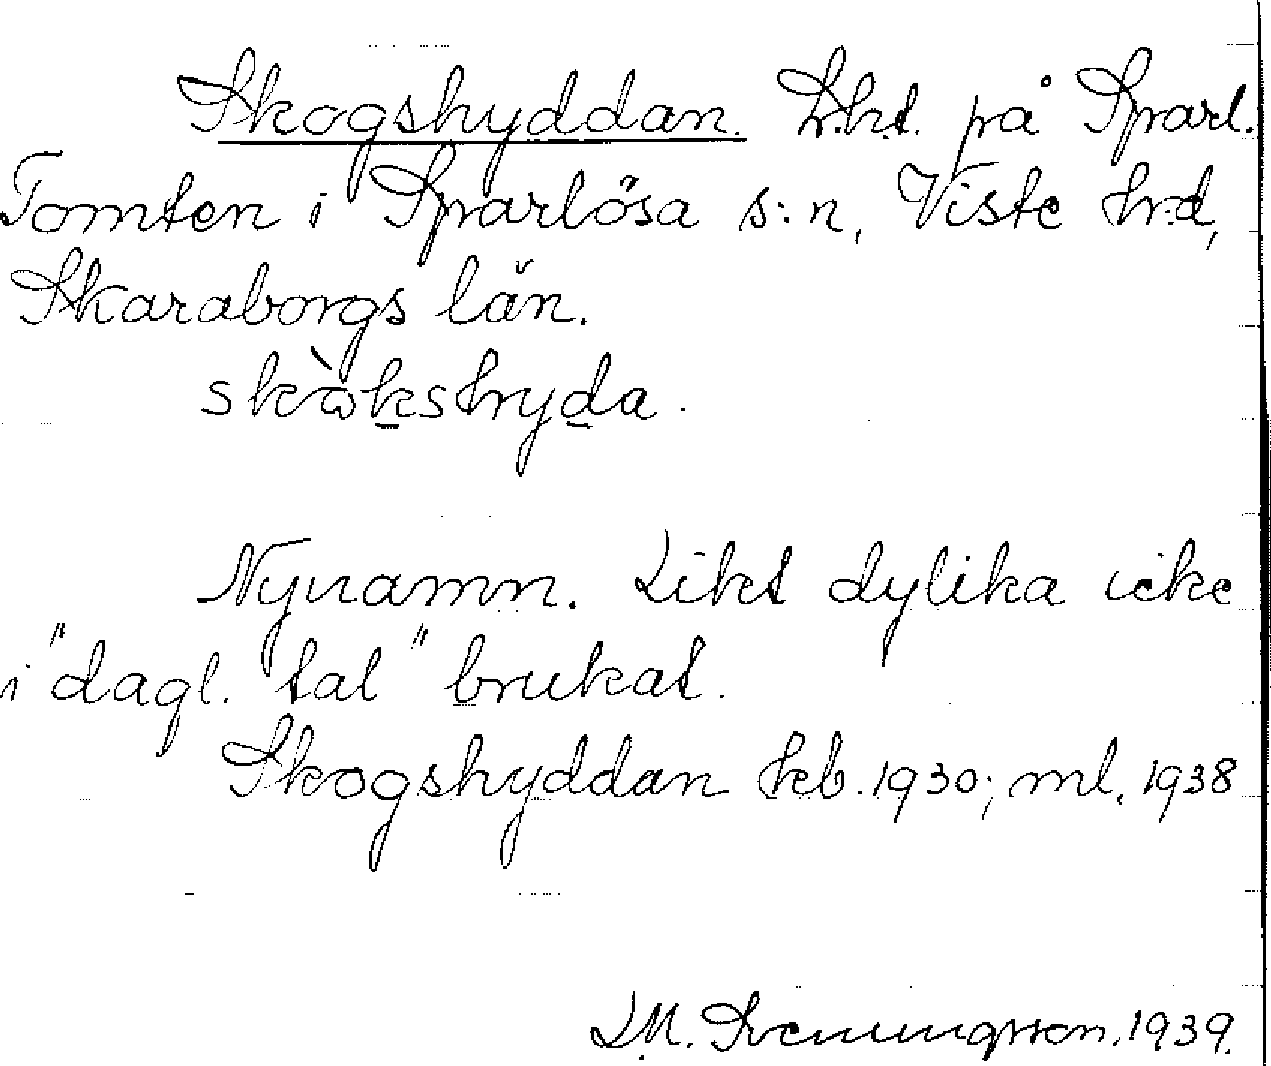 Skogshyddan. L.ht. på Sparl.
Tomten i Sparlösa s:n, Viste hd,
Skaraborgs län.
skòkshyda.
Nynamn. Likt dylika icke
i "dagl. tal" brukat.
Skogshyddan kb. 1930; ml. 1938
L M. Svenungsson. 1939.